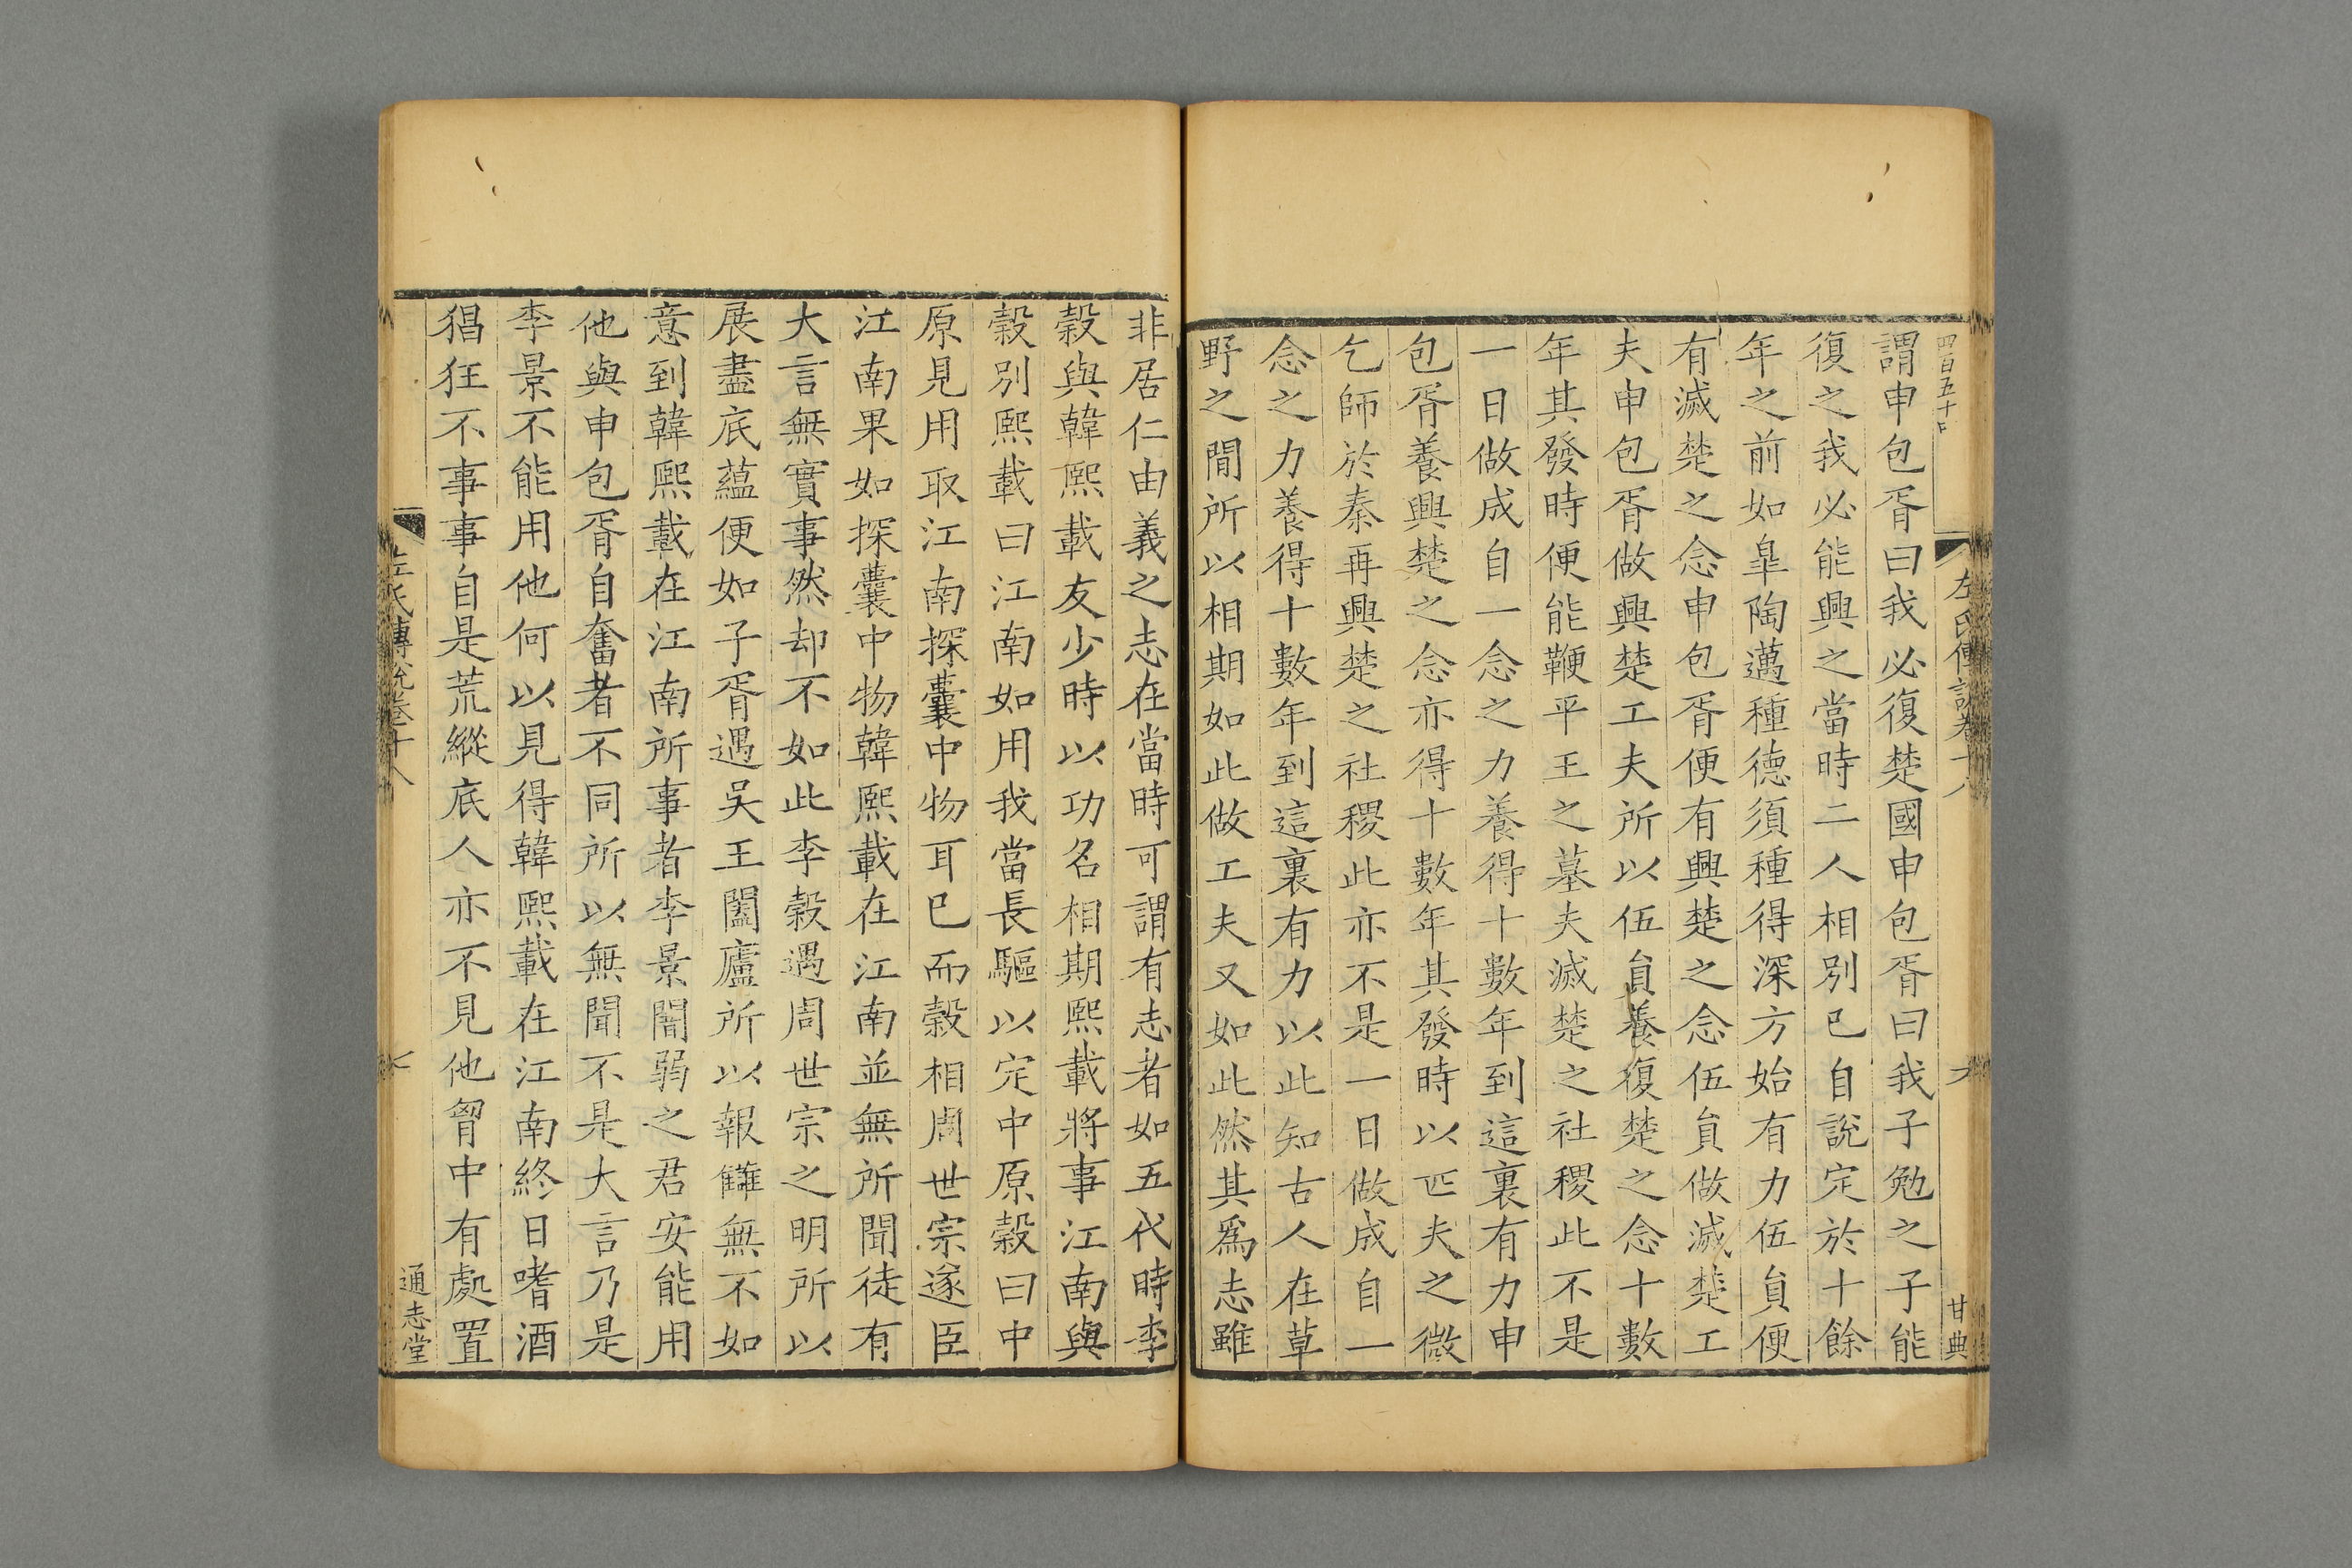 四百五十
左氏傳說卷十八
甘典
謂申包胥曰我必復楚國申包胥曰我子勉之子能
復之我必能興之當時二人相別已自說定於十餘
年之前如臯陶邁種德須種得深方始有力伍負便
有滅楚之念申包胥便有興楚之念伍負做滅楚工
夫申包胥做興楚工夫所以伍負養復楚之念十數
年其發時便能鞭平王之墓夫滅楚之社稷此不是
一日做成自一念之力養得十數年到這裏有力申
包胥養興楚之念亦得十數年其發時以匹夫之微
乞師於秦再興楚之社稷此亦不是一日做成自一
念之力養得十數年到這裏有力以此知古人在草
野之閒所以相期如此做工夫又如此然其爲志雖
非居仁由義之志在當時可謂有志者如五代時李
穀與韓熙載友少時以功名相期熙載將事江南與
穀別熙載曰江南如用我當長驅以定中原穀曰中
原見用取江南探囊中物耳已而穀相周世宗遂臣
江南果如探囊中物韓熙載在江南並無所聞徒有
大言無實事然却不如此李穀遇周世宗之明所以
展盡底蘊便如子胥遇吳王闔廬所以報讎無不如
意到韓熙載在江南所事者李景闇弱之君安能用
他與申包胥自奮者不同所以無聞不是大言乃是
李景不能用他何以見得韓熙載在江南終日嗜酒
猖狂不事事自是荒縱底人亦不見他胷中有處置
左氏傳說卷十八
通志堂